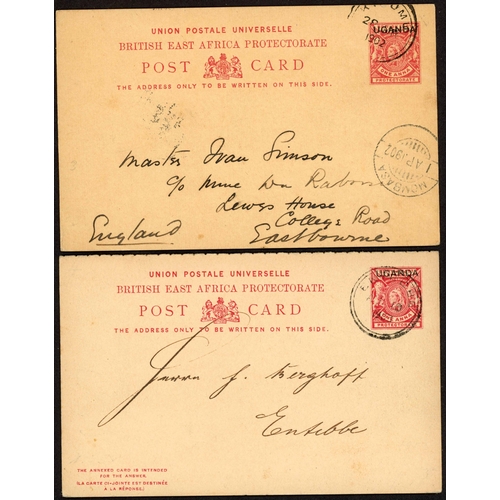 UNION POSTALE UNIVERSELLE
BRITISH EAST AFRICA PROTECTORATE
POST CARD
THE ADDRESS ONLY TO BE WRITTEN ON THIS SIDE.
UGANDA
ONE ANNA
PROTECTORATE
1902
MOMBASA
AP 1902
Master Ivan Simson
c/o
Lewes House
College Road
England
Eastbourne
UNION POSTALE UNIVERSELLE
BRITISH EAST AFRICA PROTECTORATE
POST CARD
THE ADDRESS ONLY TO BE WRITTEN ON THIS SIDE.
UGANDA
ONE ANNA
PROTECTORATE
Herrn J. Berghoff
Entebbe
THE ANNEXED CARD IS INTENDED
FOR THE ANSWER.
(LA CARTE CI-JOINTE EST DESTINÉE
À LA RÉPONSE.)